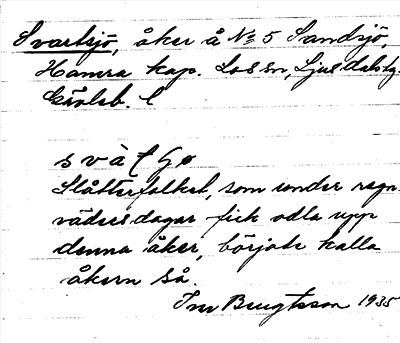 Svartsjö, åker å № 5 Sandsjö,
Hamra kap. Los sn, Ljusdals tg.
Gävleb. l
Slåtterfolket, som under regn-
vädersdagar fick odla upp
denna åker, började kalla
åkern så.
Bengtsson 1935